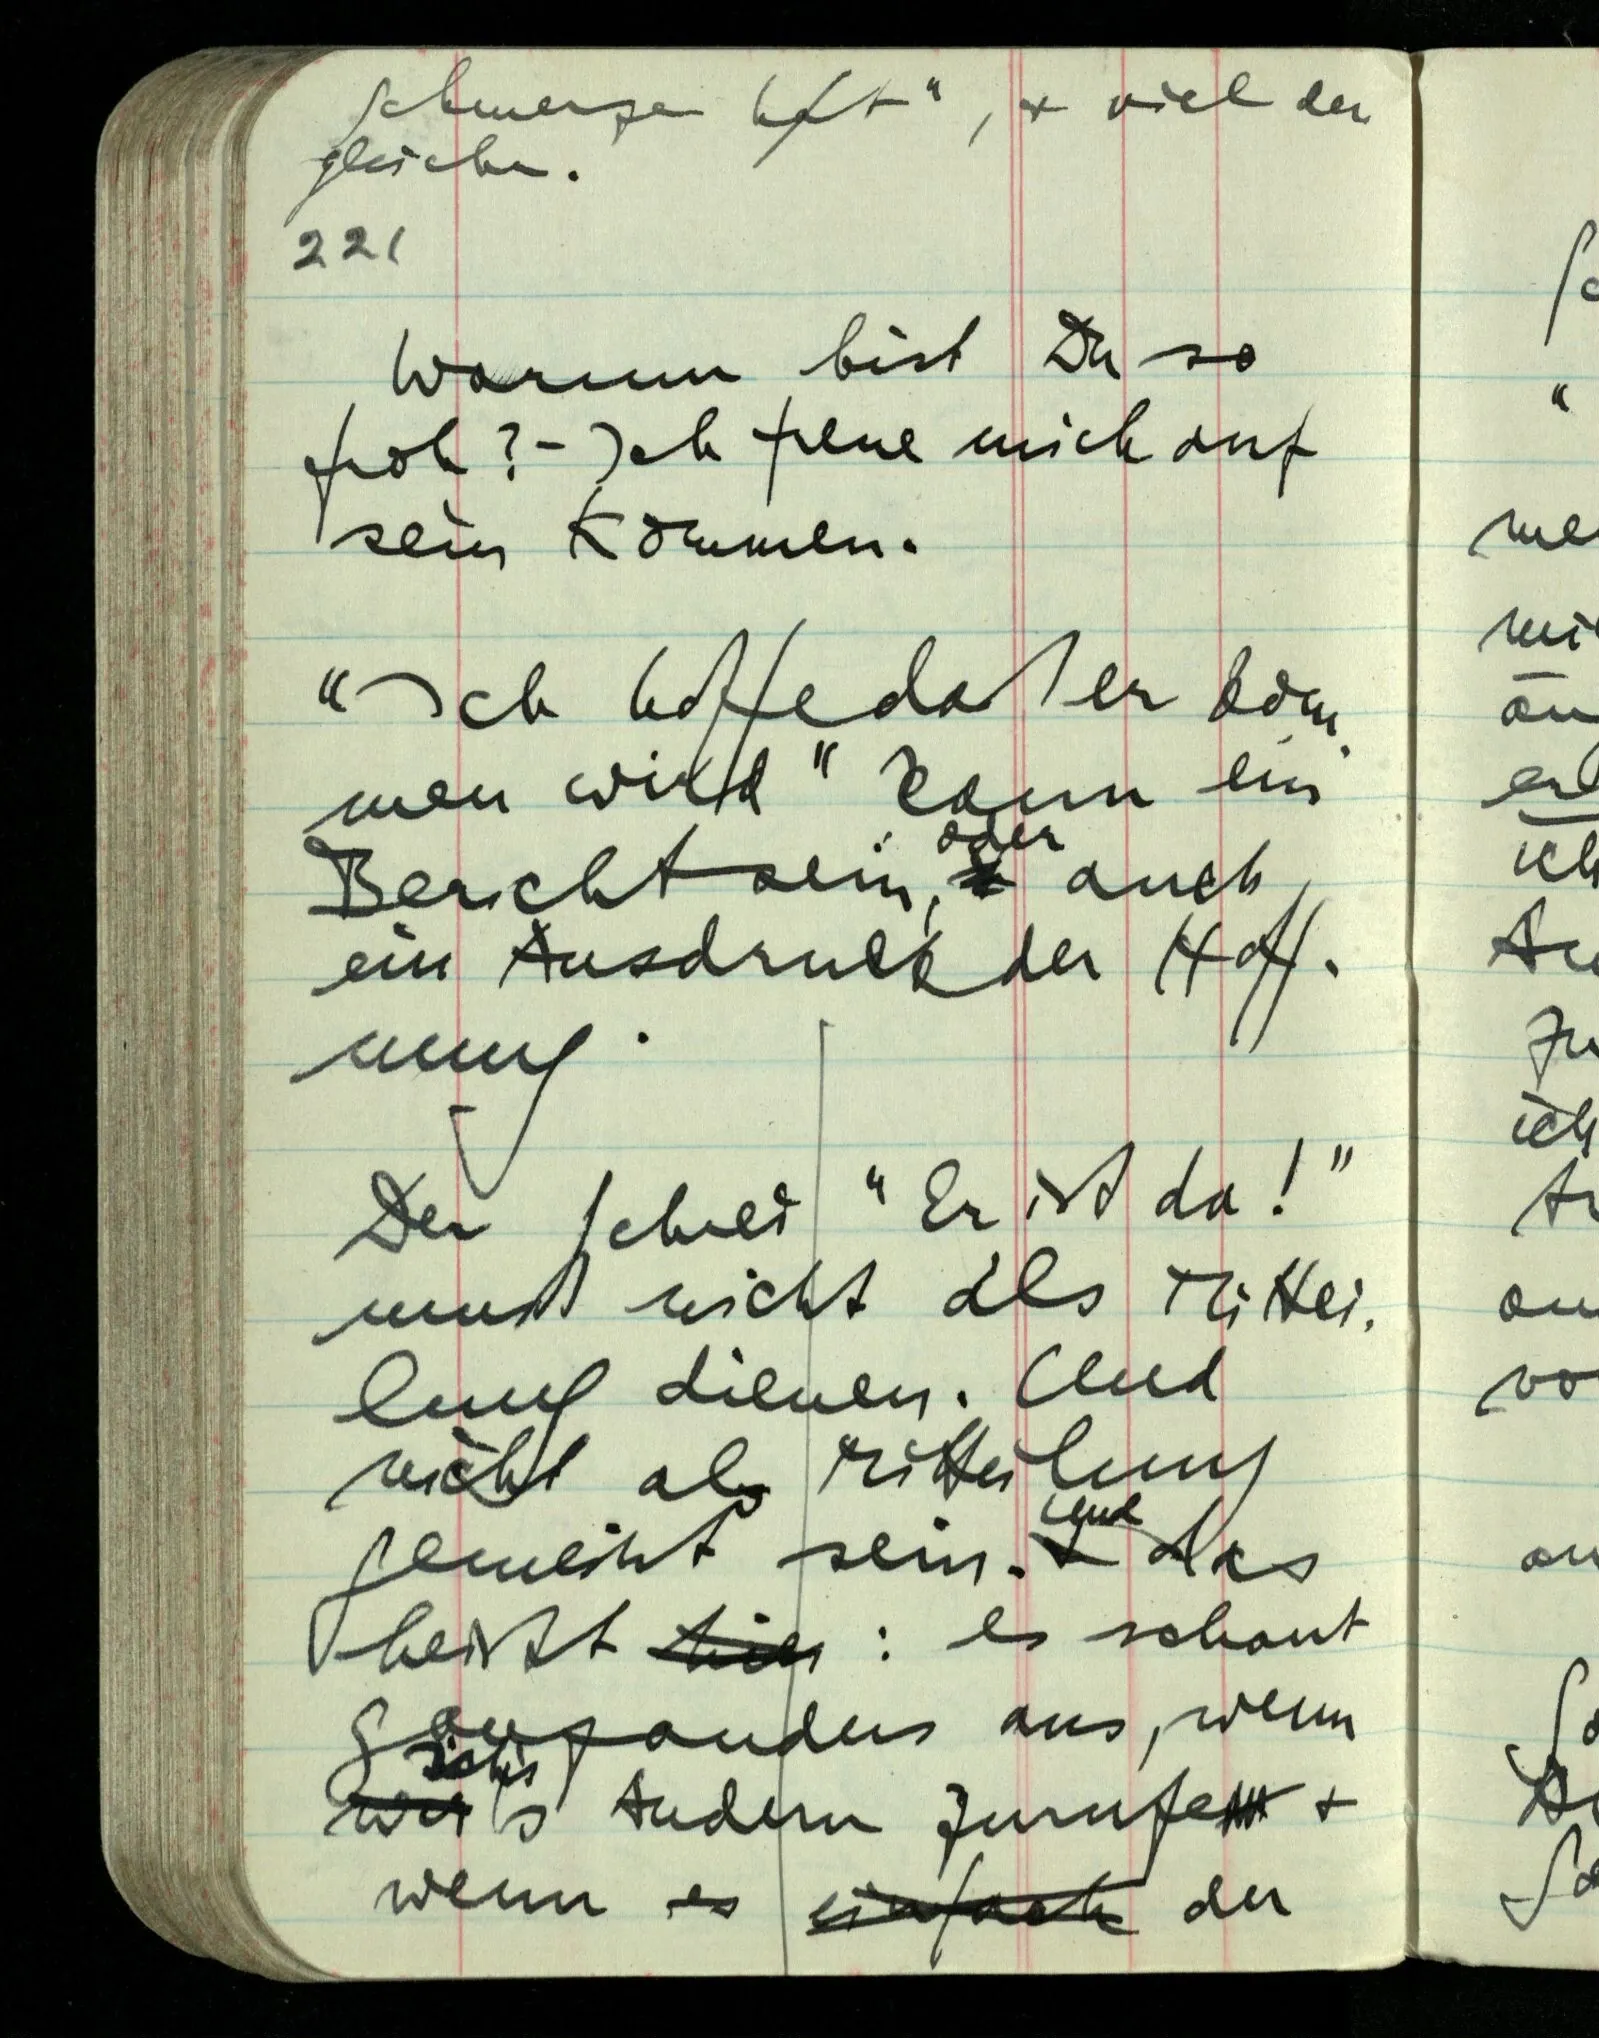 schmerzen hast", + viel der
gleichen.
221
Warum bist Du so
froh? – Ich freue mich auf
sein Kommen.
"Ich hoffe daß er kom-
men wird" kann ein
Bericht sein, oder auch
ein Ausdruck der Hoff-
nung.
Der Schrei "Er ist da!"
muß nicht als Mittei-
lung dienen. Und
nicht als Mitteilung
gemeint sein. Und das
heißt hier: es schaut
ganz anders aus, wenn
wir ich's Andern zurufe +
wenn es einfach der